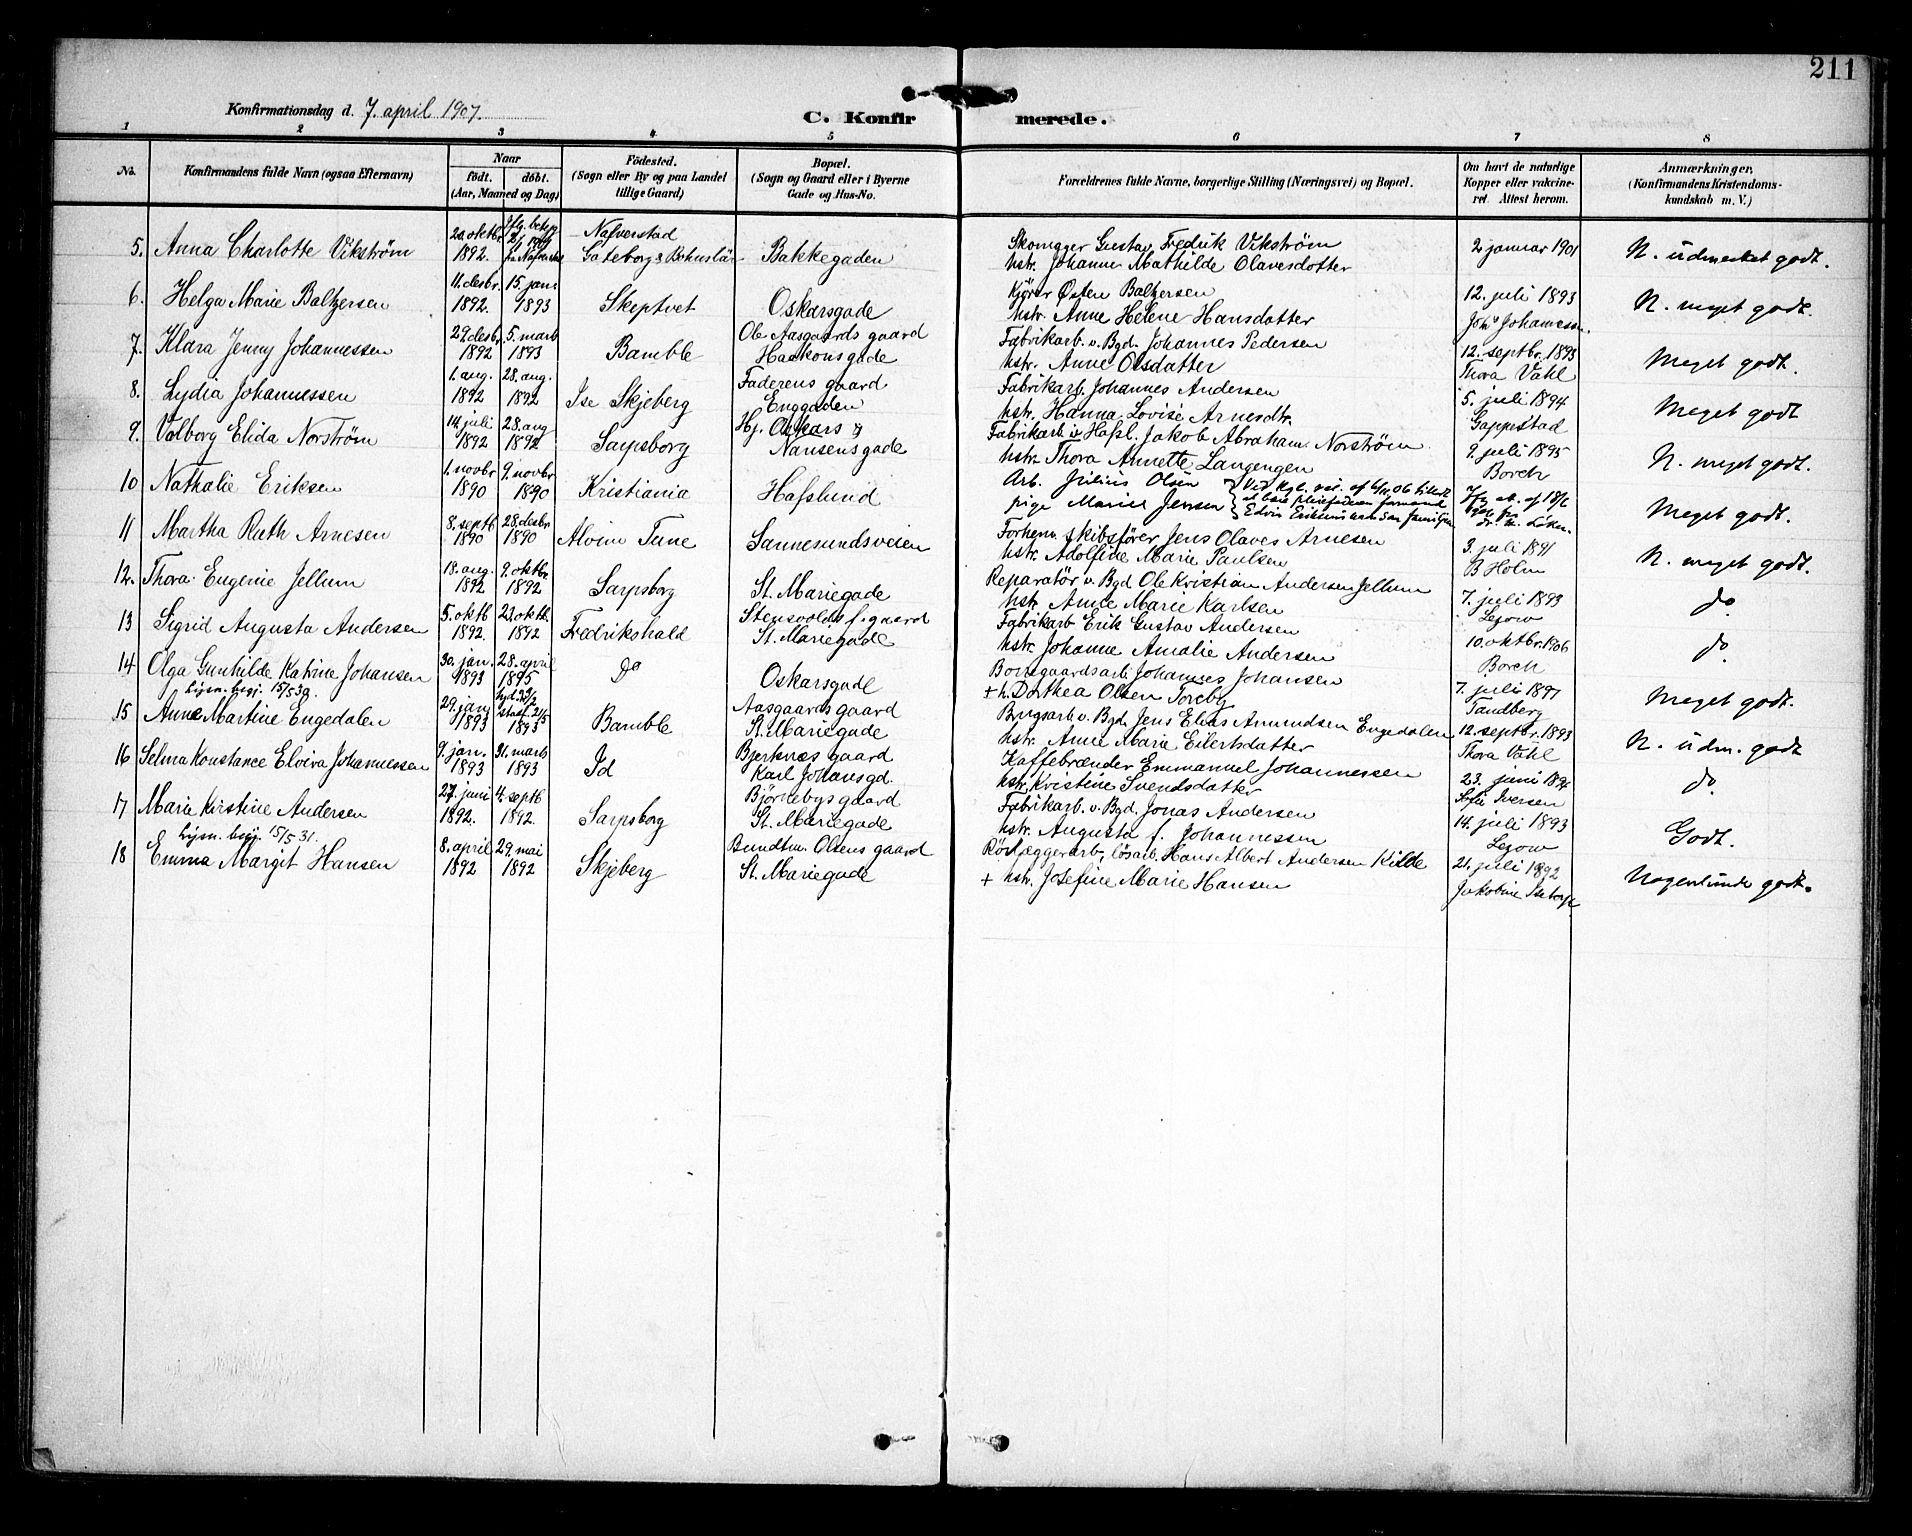 211
Konfirmationsdag d. 7. april 1907.
C. Konfirmerede.
1 2 3 4 5 6 7 8
No.
Konfirmandens fulde Navn (ogsaa Efternavn)
Naar
födt. döbt.
(Aar, Maaned og Dag)
Födested.
(Sogn eller By og paa Landet
tillige Gaard)
Bopæl.
(Sogn og Gaard eller i Byerne
Gade og Hus-No.
Forældrenes fulde Navne, borgerlige Stilling (Næringsvei) og Bopæl.
Om havt de naturlige
Kopper eller vakcine-
ret Attest herom.
Anmærkninger,
(Konfirmandens Kristendoms-
kundskab m. V.)
5. Anna Charlotte Vikström 20 oktbr. 1892. Nafverstad
Gøteborg & Bohuslän Bakkegaden
Skomager Gustav Fredrik Vikström
hstr. Johanne Mathilde Olavesdotter
2 januar 1901
N. üdmerket godt.
6. Helga Marie Baltzersen 11. desbr. 1892. 15. jan. 1893 Skeptvet Oskarsgade
Kjörer Østen Baltzersen
hstr. Anne Helene Hansdatter
12. juli 1893
Johs Johannessen
N. meget godt.
7. Klara Jenny Johannessen 29 desbr. 1892 5. marts 1893 Bamble
Ole Aasgaards gaard
Haakonsgade
Fabrikarb. v. Bgd. Johannes Pedersen
hstr. Anne Olsdatter
12. septbr. 1893
Thora Vahl
Meget godt.
8. Lydia Johannessen 1. aug. 1892 28. aug. 1892 Ise Skjeberg
Faderens gaard
Enggaden
Fabrikarb. Johannes Andersen
hstr. Hanna Lovise Arnesdtr.
5. juli 1894
Gappestad
Meget godt
9. Valborg Elida Norström 14. juli 1892 28. aug 1892 Sarpsborg
Hj. Oskars &
Nansensgade
Fabrikarb. v. Hafsl. Jakob Abraham Norström
hstr. Thora Annette Langengen
9. juli 1895
Borch
N. meget godt.
10 Nathalie Eriksen 1. novbr 1890 9. novbr 1890 Kristiania Hafslund
Arb. Julius Olsen
pige Marie Jensen
Meget godt.
11 Martha Ruth Arnesen 8. septb 1890 28. desbr 1890 Alvim Tune Sannesundsveien
Forhenv. skibsförer Jens Olaves Arnesen
hstr. Adolfine Marie Paulsen
3. juli 1891
B Holm
N. meget godt.
12. Thora Eugenie Jellum 18. aug. 1892 9. oktbr. 1892 Sarpsborg St. Mariegade
Reparatör v. Bgd Ole Kristian Andersen Jellum
hstr. Anne Marie Karlsen
7. juli 1893
do
13 Sigrid Augusta Andersen 5. oktb 1892. 23. oktb. 1892 Fredrikshald
Stensvolds f. gaard
St. Mariegade
Fabrikarb Erik Gustav Andersen
hstr. Johanne Amalie Andersen
10. oktbr. 1906
Borch
do
14 Olga Gunhilde Katrine Johansen 30. jan. 1893 28. april 1895 do Oskarsgade
lysn. begj. 15/5 39.
Borregaardsarb. Johannes Johansen
+ h. Dorthea Olsen Toreby
7. juli 1897
Tandberg
Meget godt.
15 Anne Martine Engedalen 29. jan 1893 1893 Bamble
Aasgaards gaard
St. Mariegade
Brugsarb. v. Bgd. Jens Elias Amundsen Engedalen
hstr. Anne Marie Eilertsdatter
12. septbr. 1893
Thora Vahl
N. üdm. godt
16 Selma Konstance Elvira Johannessen 9. jan. 1893 31. marts 1893 Id
Bjerknæs gaard
Karl Johansgd.
Kaffebrænder Emmanuel Johannessen
hstr. Kristine Svendsdatter
23. juni 1894
Sofie Iversen
do.
17 Marie Kirstine Andersen 27. juni 1892. 4. septb 1892. Sarpsborg
lysn. begj. 15/5 31.
Björnebys gaard
St. Mariegade
Fabrikarb. v. Bgd. Jonas Andersen
hstr. Augusta f. Johannessen
14. juli 1893
Godt.
18 Emma Margit Hansen 8. april 1892 29. mai 1892 Skjeberg
Bundtm. Olsens gaard
St. Mariegade
Rörlæggerarb., lösarb. Hans Albert Andersen Kilde
+ hstr. Josefine Marie Hansen
21. juli 1892
Nogenlunde godt.